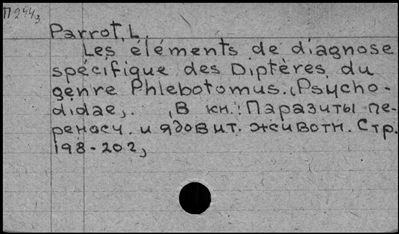 П2443
Parrot, L.
Les éléments de diagnose
spécifique des Diptères du
genre Phlebotomus. (Psycho-
didae). В кн.: Паразиты пе-
реносч. и ядовит. животн. Стр.
198-202,